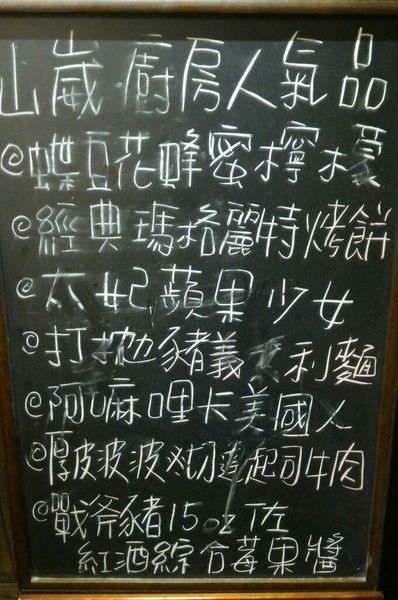 山崴廚房人氣品
@蝶豆花蜂蜜檸檬
@經典瑪格麗特烤餅
@太妃蘋果少女
@打拋豬義大利麵
@阿嘛哩卡美國人
@厚皮波波火焰起司牛肉
@戰斧豬15oz佐
紅酒綜合莓果醬